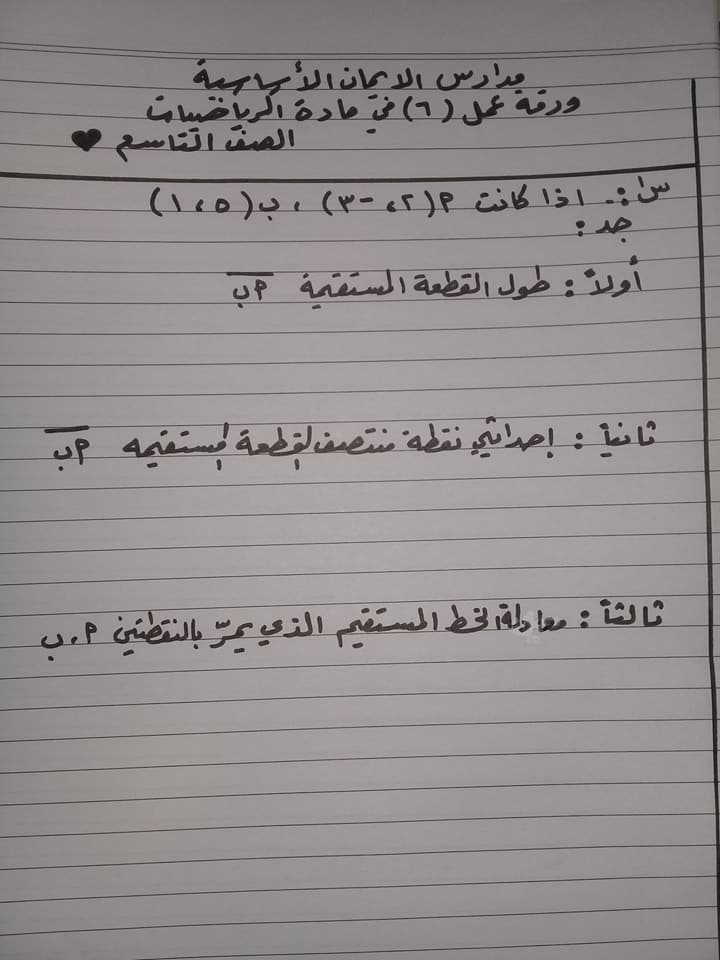 مدارس الايمان الأساسية
ورقة عمل (٦) في مادة الرياضيات
الصف التاسع ♥
س١: اذا كانت م(٢، -٣) ، ب(٥، ١)
جد :
أولاً : طول القطعة المستقيمة م ب
ثانياً : إحداثيي نقطة منتصف القطعة المستقيمه م ب
ثالثاً : معادلة الخط المستقيم الذي يمرّ بالنقطتين م ، ب